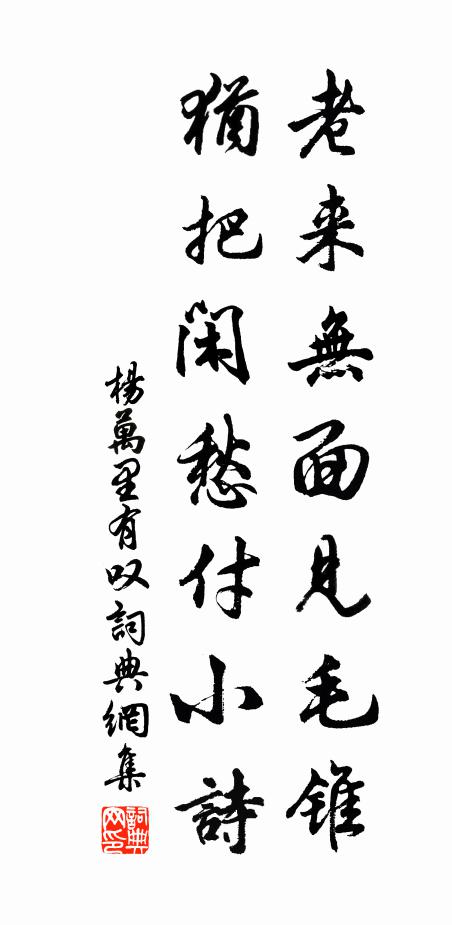 老来無面見毛錐
猶把閑愁付小詩
楊萬里有叹詞典網集
詞典网印